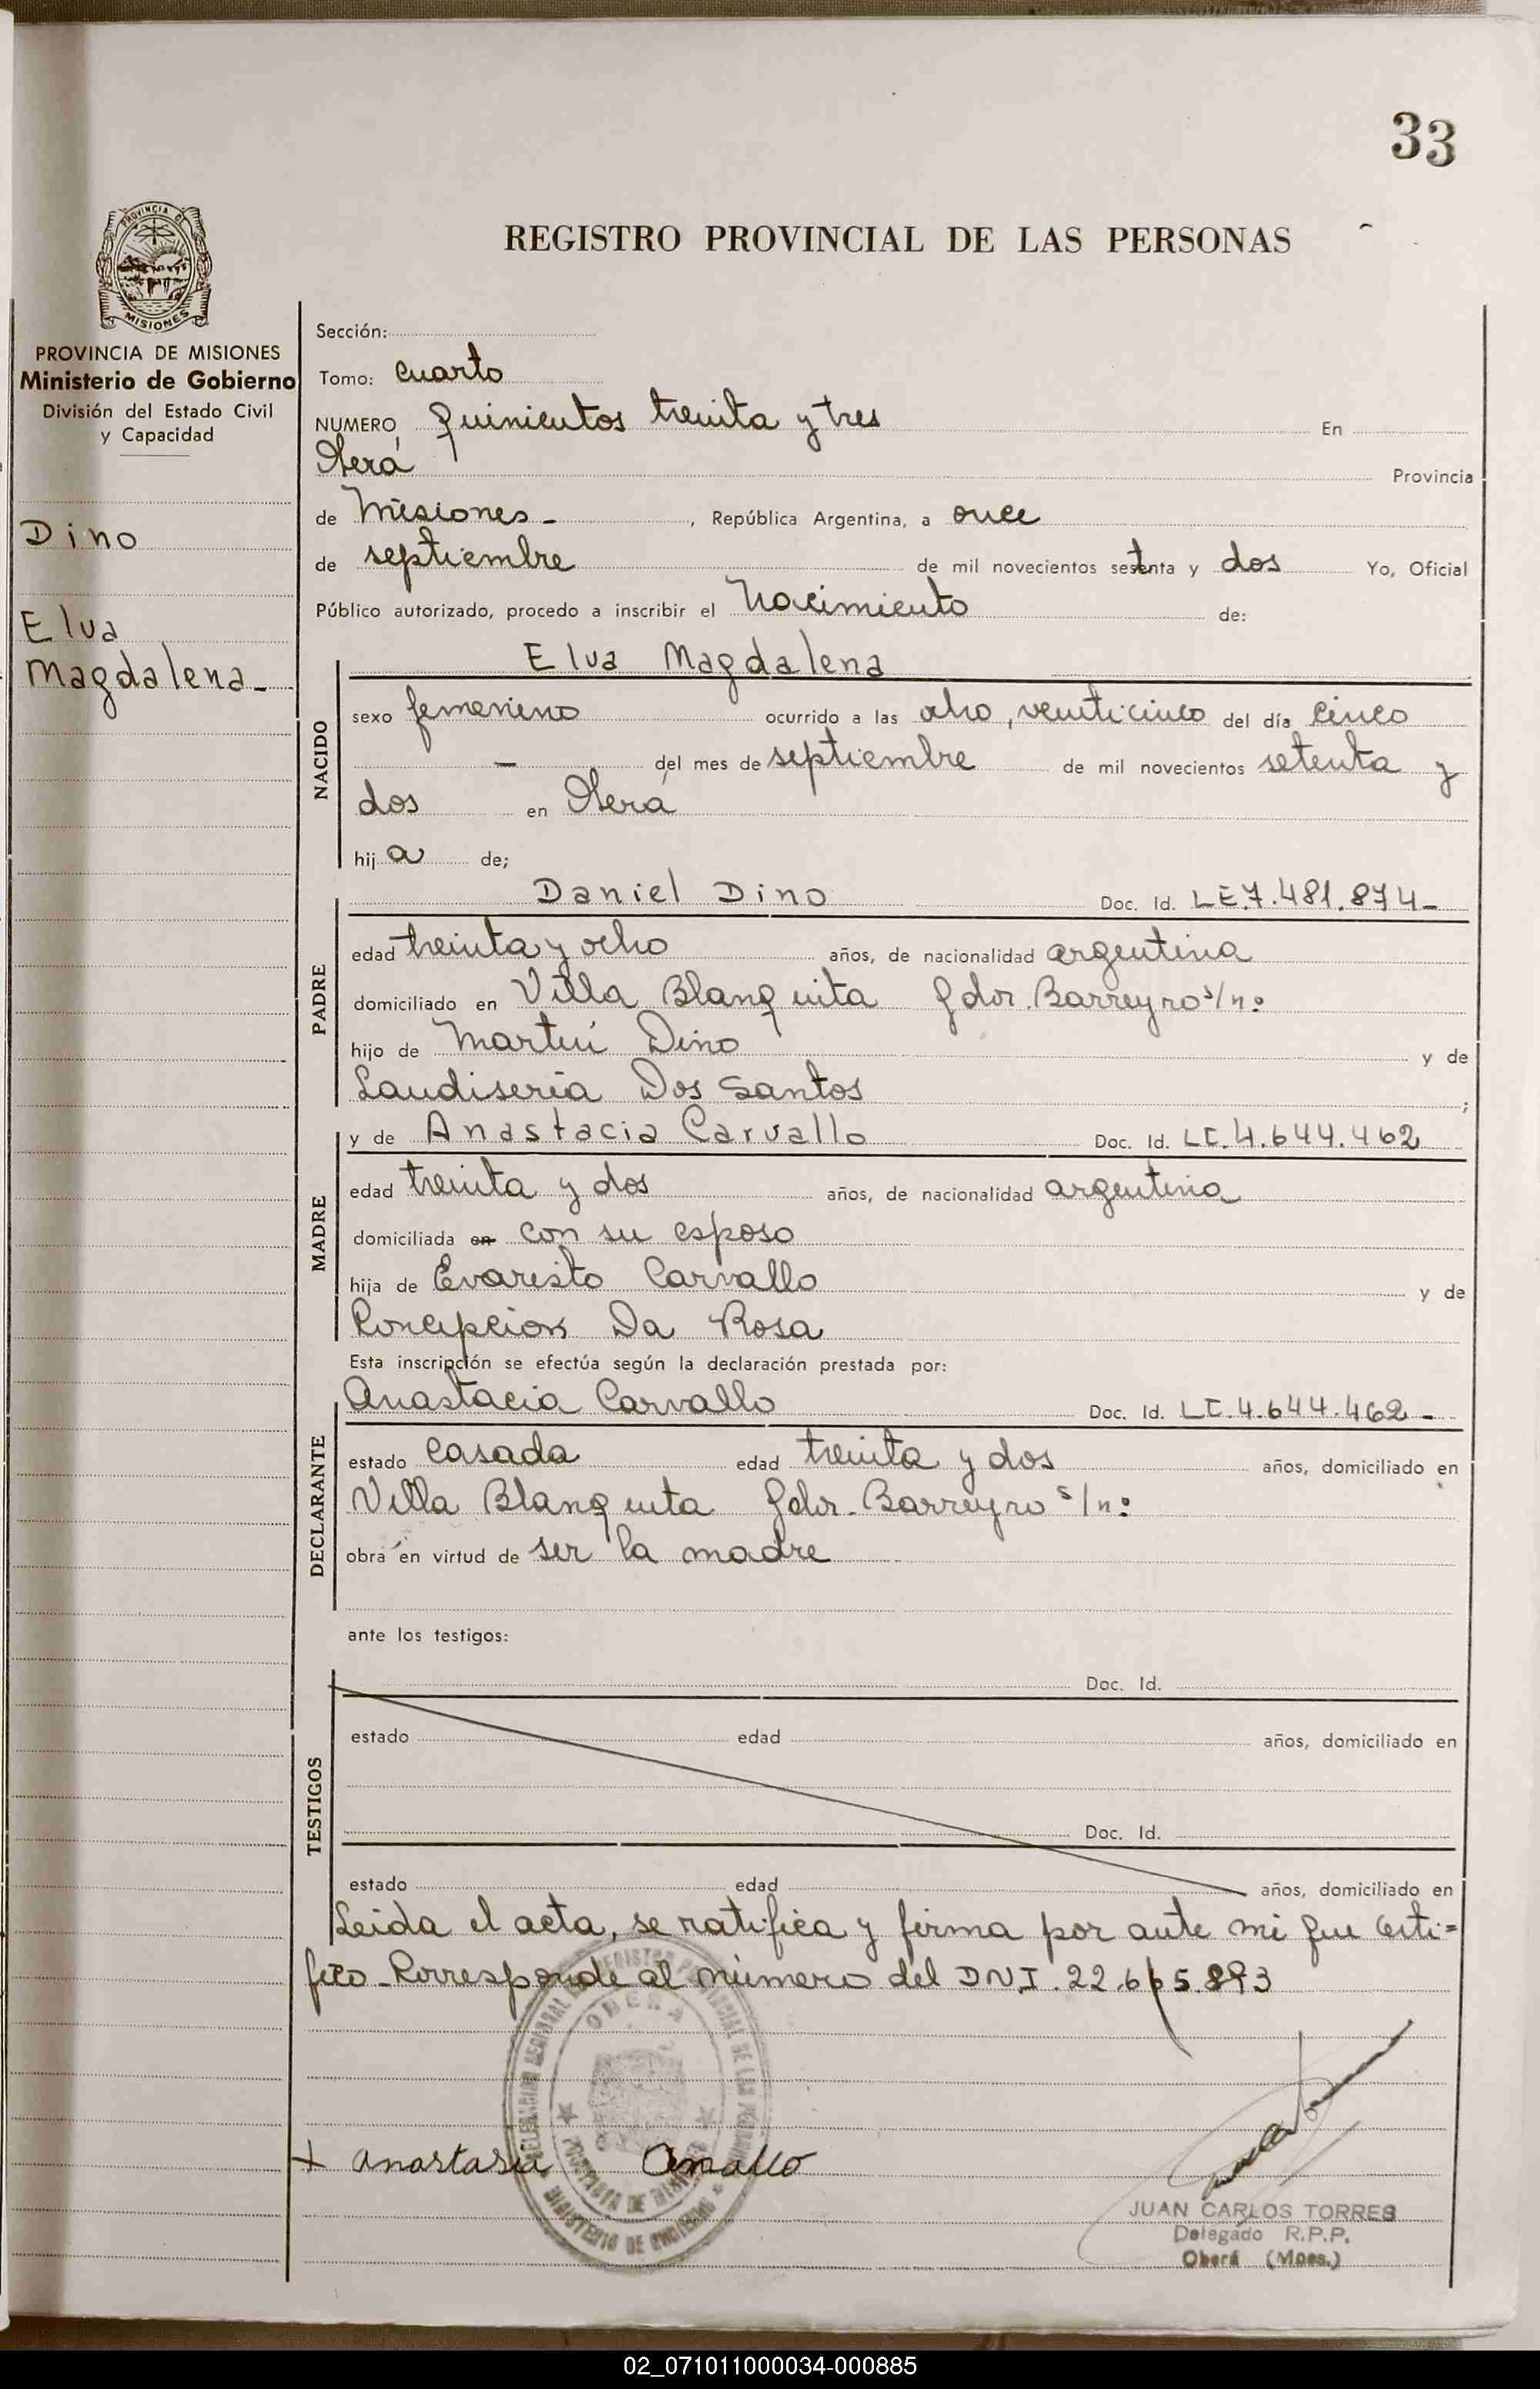 33
PROVINCIA DE
MISIONES
REGISTRO PROVINCIAL DE LAS PERSONAS
PROVINCIA DE MISIONES
Ministerio de Gobierno
División del Estado Civil
y Capacidad
Dino
Elva
Magdalena-
Sección:
Tomo: cuarto
NUMERO quinientos treinta y tres En
Oberá Provincia
de Misiones- , República Argentina, a once
de septiembre de mil novecientos setenta y dos Yo, Oficial
Público autorizado, procedo a inscribir el Nacimiento de:
Elva Magdalena
NACIDO
sexo femenino ocurrido a las ocho, veinticinco del día cinco
- del mes de septiembre de mil novecientos setenta y
dos en Oberá
hij a de;
Daniel Dino Doc. Id. LE.7.481.874-
PADRE
edad treinta y ocho años, de nacionalidad argentina
domiciliado en Villa Blanquita Gdor. Barreyro s/nº
hijo de Martín Dino y de
Laudiseria Dos Santos ;
y de Anastacia Carvallo Doc. Id. LC.4.644.462
MADRE
edad treinta y dos años, de nacionalidad argentina
domiciliada en con su esposo
hija de Evaristo Carvallo y de
Concepcion Da Rosa
Esta inscripción se efectúa según la declaración prestada por:
Anastacia Carvallo Doc. Id. LC.4.644.462-
DECLARANTE
estado casada edad treinta y dos años, domiciliado en
Villa Blanquita Gdor. Barreyro s/nº
obra en virtud de ser la madre
ante los testigos:
Doc. Id.
TESTIGOS
estado edad años, domiciliado en
Doc. Id.
estado edad años, domiciliado en
Leida el acta, se ratifica y firma por ante mi que certi=
fico-Corresponde al número del DNI.22.665.893
OBERA
MINISTERIO DE GOBIERNO
+ Anastasia
JUAN CARLOS TORRES
Delegado R.P.P.
Oberá (Mnes.)
02_071011000034-000885